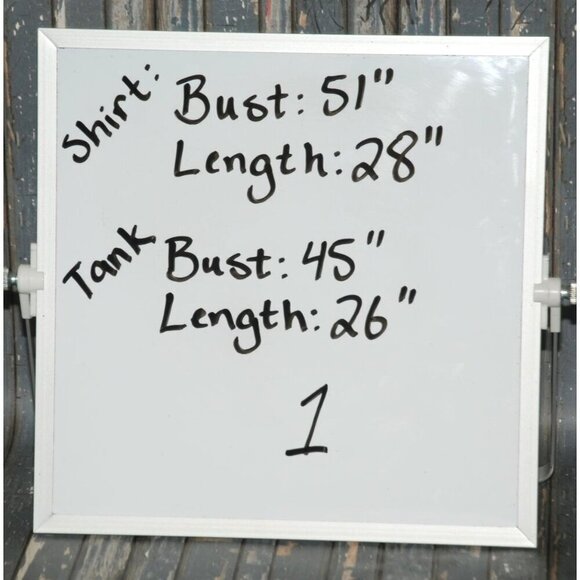 Shirt: Bust: 51"
Length: 28"
Tank Bust: 45"
Length: 26"
1